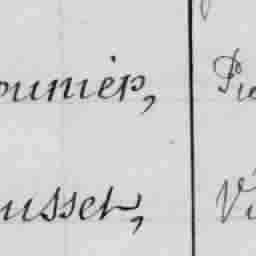 ounier, Pie
usset, Vi